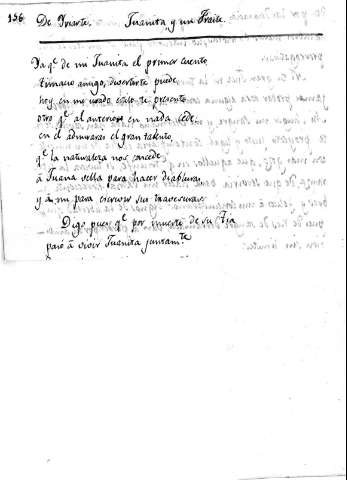 156 De Yriarte. Juanita, y un Fraile.
Ya q.e de mi Juanita el primer cuento,
amigo, divertirte puede
hoy, en mi usado estilo te presento
otro q.e al anterior en nada cede:
en él admiraras el gran talento
q.e la naturaleza nos concede
â Juana bella para hacer diabluras,
y â mi para escrivir sus travesuras.
Digo pues q.e por muerte de su Tia
pasó â vivir Juanita juntam.te